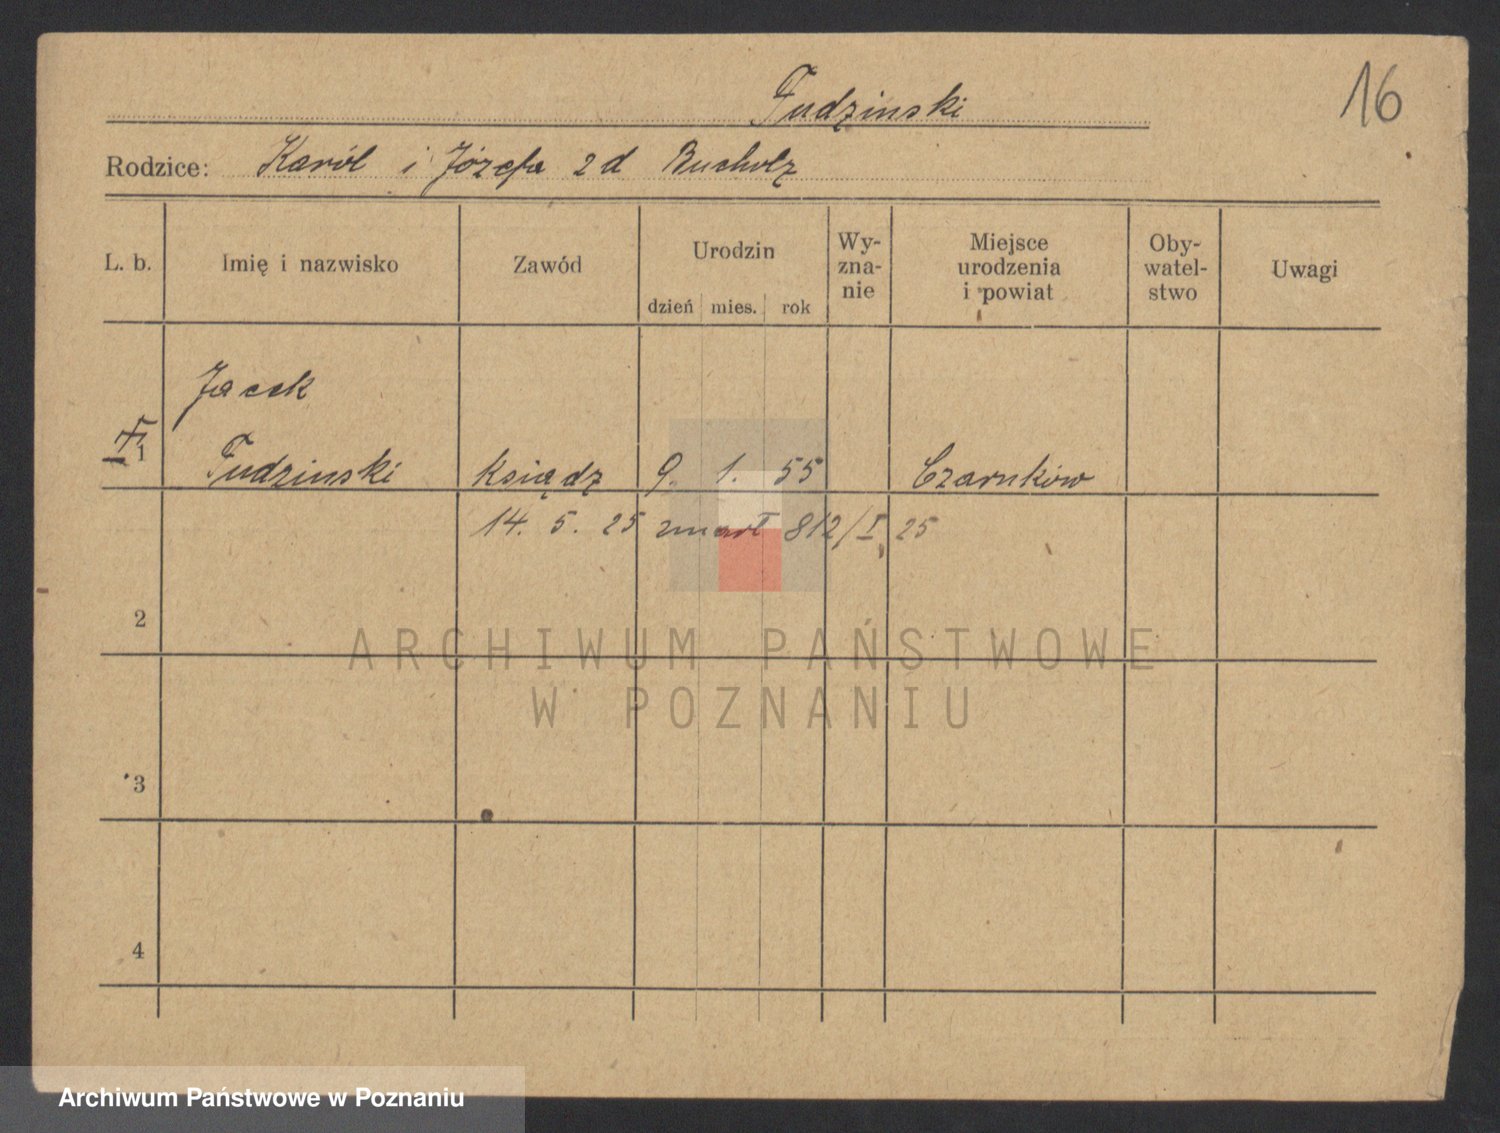 Fudzinski
16
Rodzice: Karól i Józefa z d Bucholz
L. b. Imię i nazwisko Zawód Urodzin dzień mies. rok Wy-zna-nie Miejsce urodzenia i powiat Oby-watel-stwo Uwagi
Jacek
1 Fudzinski Ksiądz 9. 1. 55 Czarnków
14. 5. 25 zmarł 812/I 25
2
ARCHIWUM PAŃSTWOWE
W POZNANIU
3
4
Archiwum Państwowe w Poznaniu